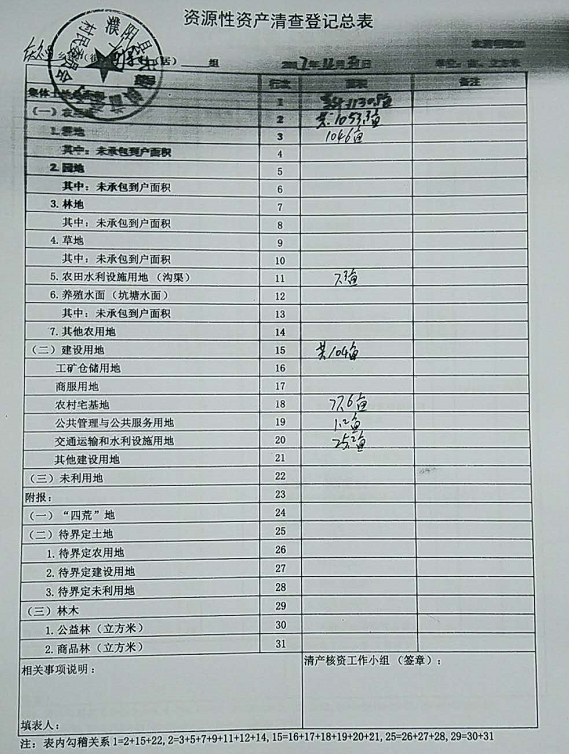 资源性资产清查登记总表
组 2017年12月 日
行次 面积 备注
集体土地 1
(一) 2 共:1053.3亩
1.耕地 3 1046亩
其中:未承包到户面积 4
2.园地 5
其中:未承包到户面积 6
3.林地 7
其中:未承包到户面积 8
4.草地 9
其中:未承包到户面积 10
5.农田水利设施用地(沟渠) 11 7.3亩
6.养殖水面(坑塘水面) 12
其中:未承包到户面积 13
7.其他农用地 14
(二)建设用地 15 共104亩
工矿仓储用地 16
商服用地 17
农村宅基地 18 77.6亩
公共管理与公共服务用地 19 1.2亩
交通运输和水利设施用地 20 25.2亩
其他建设用地 21
(三)未利用地 22
附报: 23
(一)“四荒”地 24
(二)待界定土地 25
1.待界定农用地 26
2.待界定建设用地 27
3.待界定未利用地 28
(三)林木 29
1.公益林(立方米) 30
2.商品林(立方米) 31
相关事项说明: 清产核资工作小组(签章):
填表人:
注:表内勾稽关系1=2+15+22, 2=3+5+7+9+11+12+14, 15=16+17+18+19+20+21, 25=26+27+28, 29=30+31